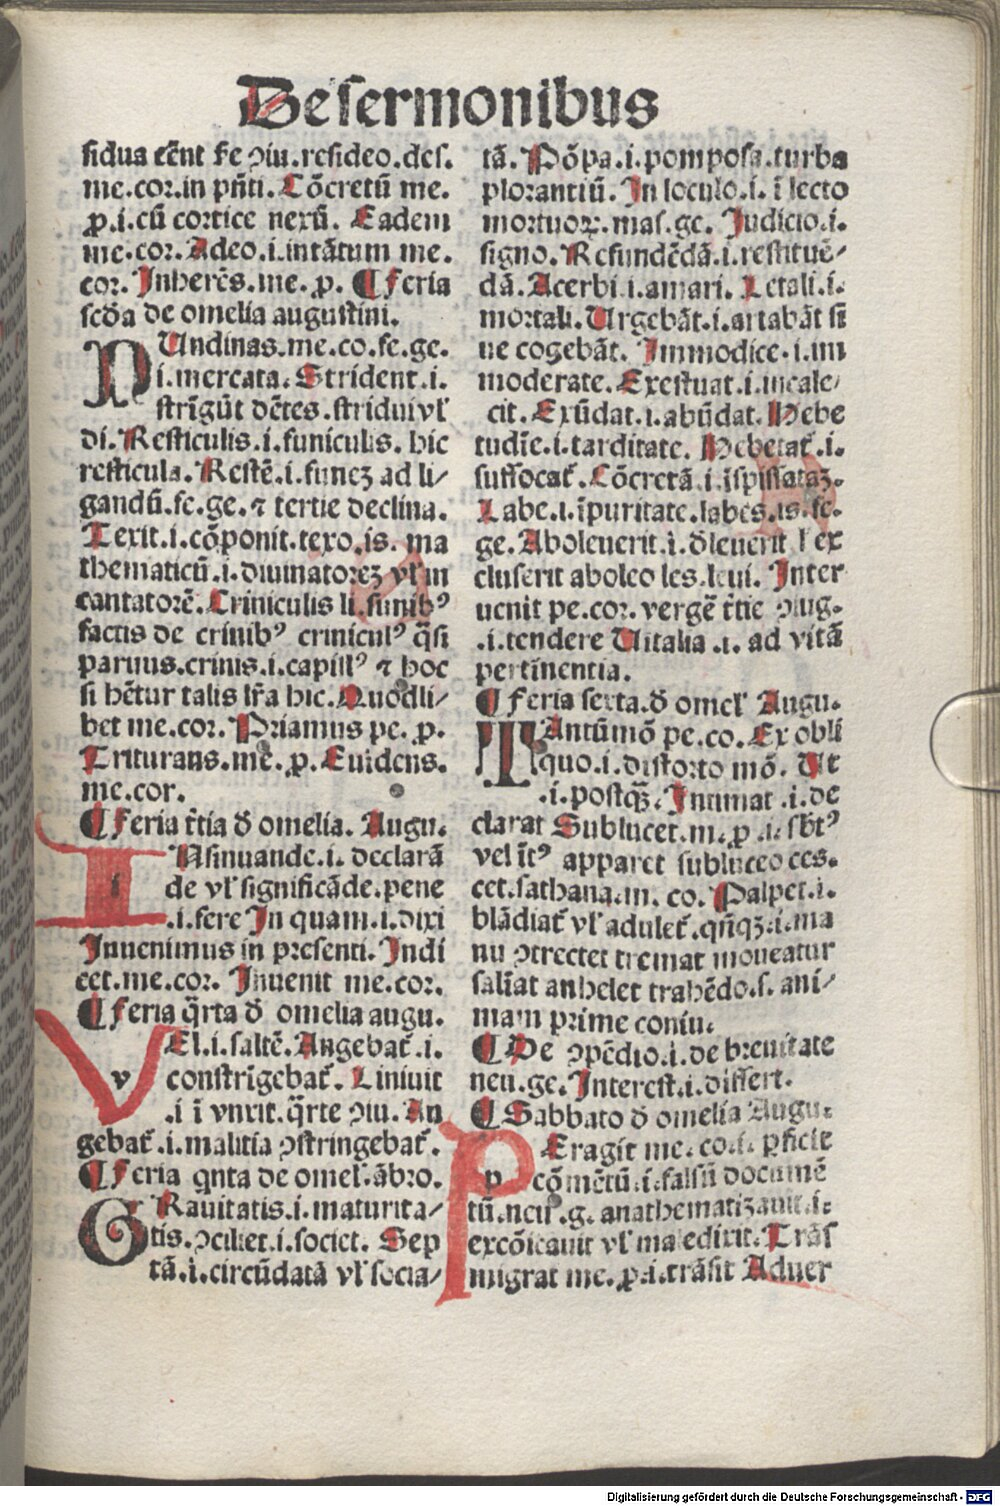 De sermonibus
sidua cẽnt fe ꝯiu.resideo.des.
me.cor.in pñti. Cõcretũ me.
ꝓ.i.cũ cortice nexũ. Eadem
me.cor. Adeo.i.intãtum me.
cor. Inherẽs.me.ꝓ. ¶ feria
scďa de omelia augustini.
NUndinas.me.co.fe.ge.
i.mercata. Strident.i.
strĩgũt dẽtes.stridui vł
di. Resticulis.i.funiculis. hic
resticula. Restẽ.i.funeꝫ ad li/
gandũ.fe.ge.⁊ tertie declina.
Texit.i.cõponit.texo.is. ma
thematicũ.i.diuinatoreꝫ vł in
cantatorẽ. Criniculis li.funibꝰ
factis de crinibꝰ criniculꝰ q̃si
paruus.crinis.i.capillꝰ ⁊ hoc
si hẽtur talis lr̃a hic. Quodli/
bet me.cor. Priamus pe.ꝓ.
Triturans.me.ꝓ. Euidens.
me.cor.
¶ feria t̃tia ď omelia. Augu.
INsinuande.i. declarã
de vł significãde.pene
.i.fere In quam.i.dixi
Inuenimus in presenti. Indi
cet.me.cor. Inuenit me.cor.
¶ feria q̃rta ď omelia augu.
VEl.i.saltẽ. Angebat̃.i.
constrĩgebat̃. Liniuit
.i ĩ vnxit.q̃rte ꝯiu. An
gebat̃.i.malitia ꝯstringebat̃.
¶ feria qnta de omel̃.ãbro.
GRauitatis.i.maturita/
tis.ꝯciliet.i.societ. Sep
tã.i.circũdatã vł socia/
tã. Põpa.i.pomposa.turba
plorantiũ. In loculo.i. ĩ lecto
mortuoꝝ.mas.ge. Judicio.i.
signo. Refundẽdã.i.restituẽ/
dã. Acerbi.i.amari. Letali.i.
mortali. Urgebãt.i.artabãt sĩ
ue cogebãt. Immodice.i.im
moderate. Exestuat.i.incale/
cit. Exũdat.i.abũdat. Hebe
tudĩe.i.tarditate. Hebetat̃.i.
suffocat̃. Cõcretã.i.ĩspissataꝫ.
Labe.i.ĩpuritate.labes.is.fe.
ge. Aboleuerit.i.ďleuerit ł ex
cluserit aboleo les.leui. Inter
uenit pe.cor. vergẽ t̃tie ꝯiug.
.i.tendere Uitalia .i. ad vitã
pertĩnentia.
¶ feria sexta.ď omel̃ Augu.
TAntũmõ pe.co. Ex obli
quo.i.distorto mõ. Ut
.i.postq̃ꝫ. Intimat .i.de
clarat Sublucet.m.ꝓ .i. sb̃tꝰ
vel ĩtꝰ apparet subluceo ces.
cet.sathana.m. co. Palpet.i.
blãdiat̃ vł adulet̃.qñqꝫ.i.ma
nu ꝯtrectet tremat moueatur
salĩat anhelet trahẽdo.s. ani/
mam prime coniu.
¶ De ꝯpẽdio.i.de breuitate
neu.ge. Interest.i.differt.
¶ Sabbato ď omelia Augu.
PEragit me.co.i. ꝑficit
cõmẽtũ.i.falsũ documẽ
tũ.neu.g. anathematizauit.i.
excõicauit vł maledixit. Trãs
migrat me.ꝓ.i.trãsit Aduer
Digitalisierung gefördert durch die Deutsche Forschungsgemeinschaft - DFG